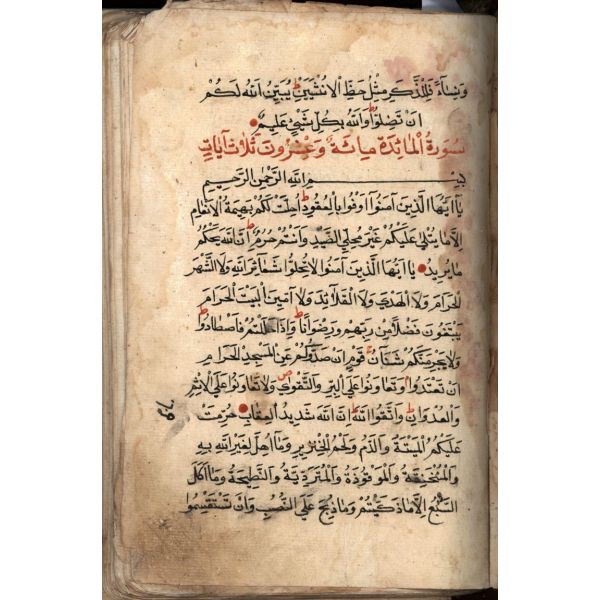 وَنِسَآءً فَلِلذَّكَرِ مِثْلُ حَظِّ الْاُنْثَيَيْنِ ط يُبَيِّنُ اللّٰهُ لَكُمْ
اَنْ تَضِلُّوا ط وَاللّٰهُ بِكُلِّ شَيْئٍ عَلِيمٌ
سُورَةُ الْمَائِدَةِ مِائَةٌ وَعِشْرُونَ ثَلَاثُ آيَاتٍ
بِسْمِ اللّٰهِ الرَّحْمٰنِ الرَّحِيمِ
يَآ اَيُّهَا الَّذِينَ آمَنُوٓا اَوْفُوا بِالْعُقُودِ ط اُحِلَّتْ لَكُمْ بَهِيمَةُ الْاَنْعَامِ
اِلَّا مَا يُتْلٰى عَلَيْكُمْ غَيْرَ مُحِلِّي الصَّيْدِ وَاَنْتُمْ حُرُمٌ ط اِنَّ اللّٰهَ يَحْكُمُ
مَا يُرِيدُ يَآ اَيُّهَا الَّذِينَ آمَنُوا لَا تُحِلُّوا شَعَآئِرَ اللّٰهِ وَلَا الشَّهْرَ
الْحَرَامَ وَلَا الْهَدْيَ وَلَا الْقَلَآئِدَ وَلَآ آمِّينَ الْبَيْتَ الْحَرَامَ
يَبْتَغُونَ فَضْلًا مِنْ رَبِّهِمْ وَرِضْوَانًا ط وَاِذَا حَلَلْتُمْ فَاصْطَادُوا ط
وَلَا يَجْرِمَنَّكُمْ شَنَاٰنُ قَوْمٍ اَنْ صَدُّوكُمْ عَنِ الْمَسْجِدِ الْحَرَامِ
اَنْ تَعْتَدُوا وَتَعَاوَنُوا عَلَى الْبِرِّ وَالتَّقْوٰى ص وَلَا تَعَاوَنُوا عَلَى الْاِثْمِ
وَالْعُدْوَانِ ط وَاتَّقُوا اللّٰهَ ط اِنَّ اللّٰهَ شَدِيدُ الْعِقَابِ حُرِّمَتْ
عَلَيْكُمُ الْمَيْتَةُ وَالدَّمُ وَلَحْمُ الْخِنْزِيرِ وَمَآ اُهِلَّ لِغَيْرِ اللّٰهِ بِهِ
وَالْمُنْخَنِقَةُ وَالْمَوْقُوذَةُ وَالْمُتَرَدِّيَةُ وَالنَّطِيحَةُ وَمَآ اَكَلَ
السَّبُعُ اِلَّا مَا ذَكَّيْتُمْ وَمَا ذُبِحَ عَلَى النُّصُبِ وَاَنْ تَسْتَقْسِمُوا